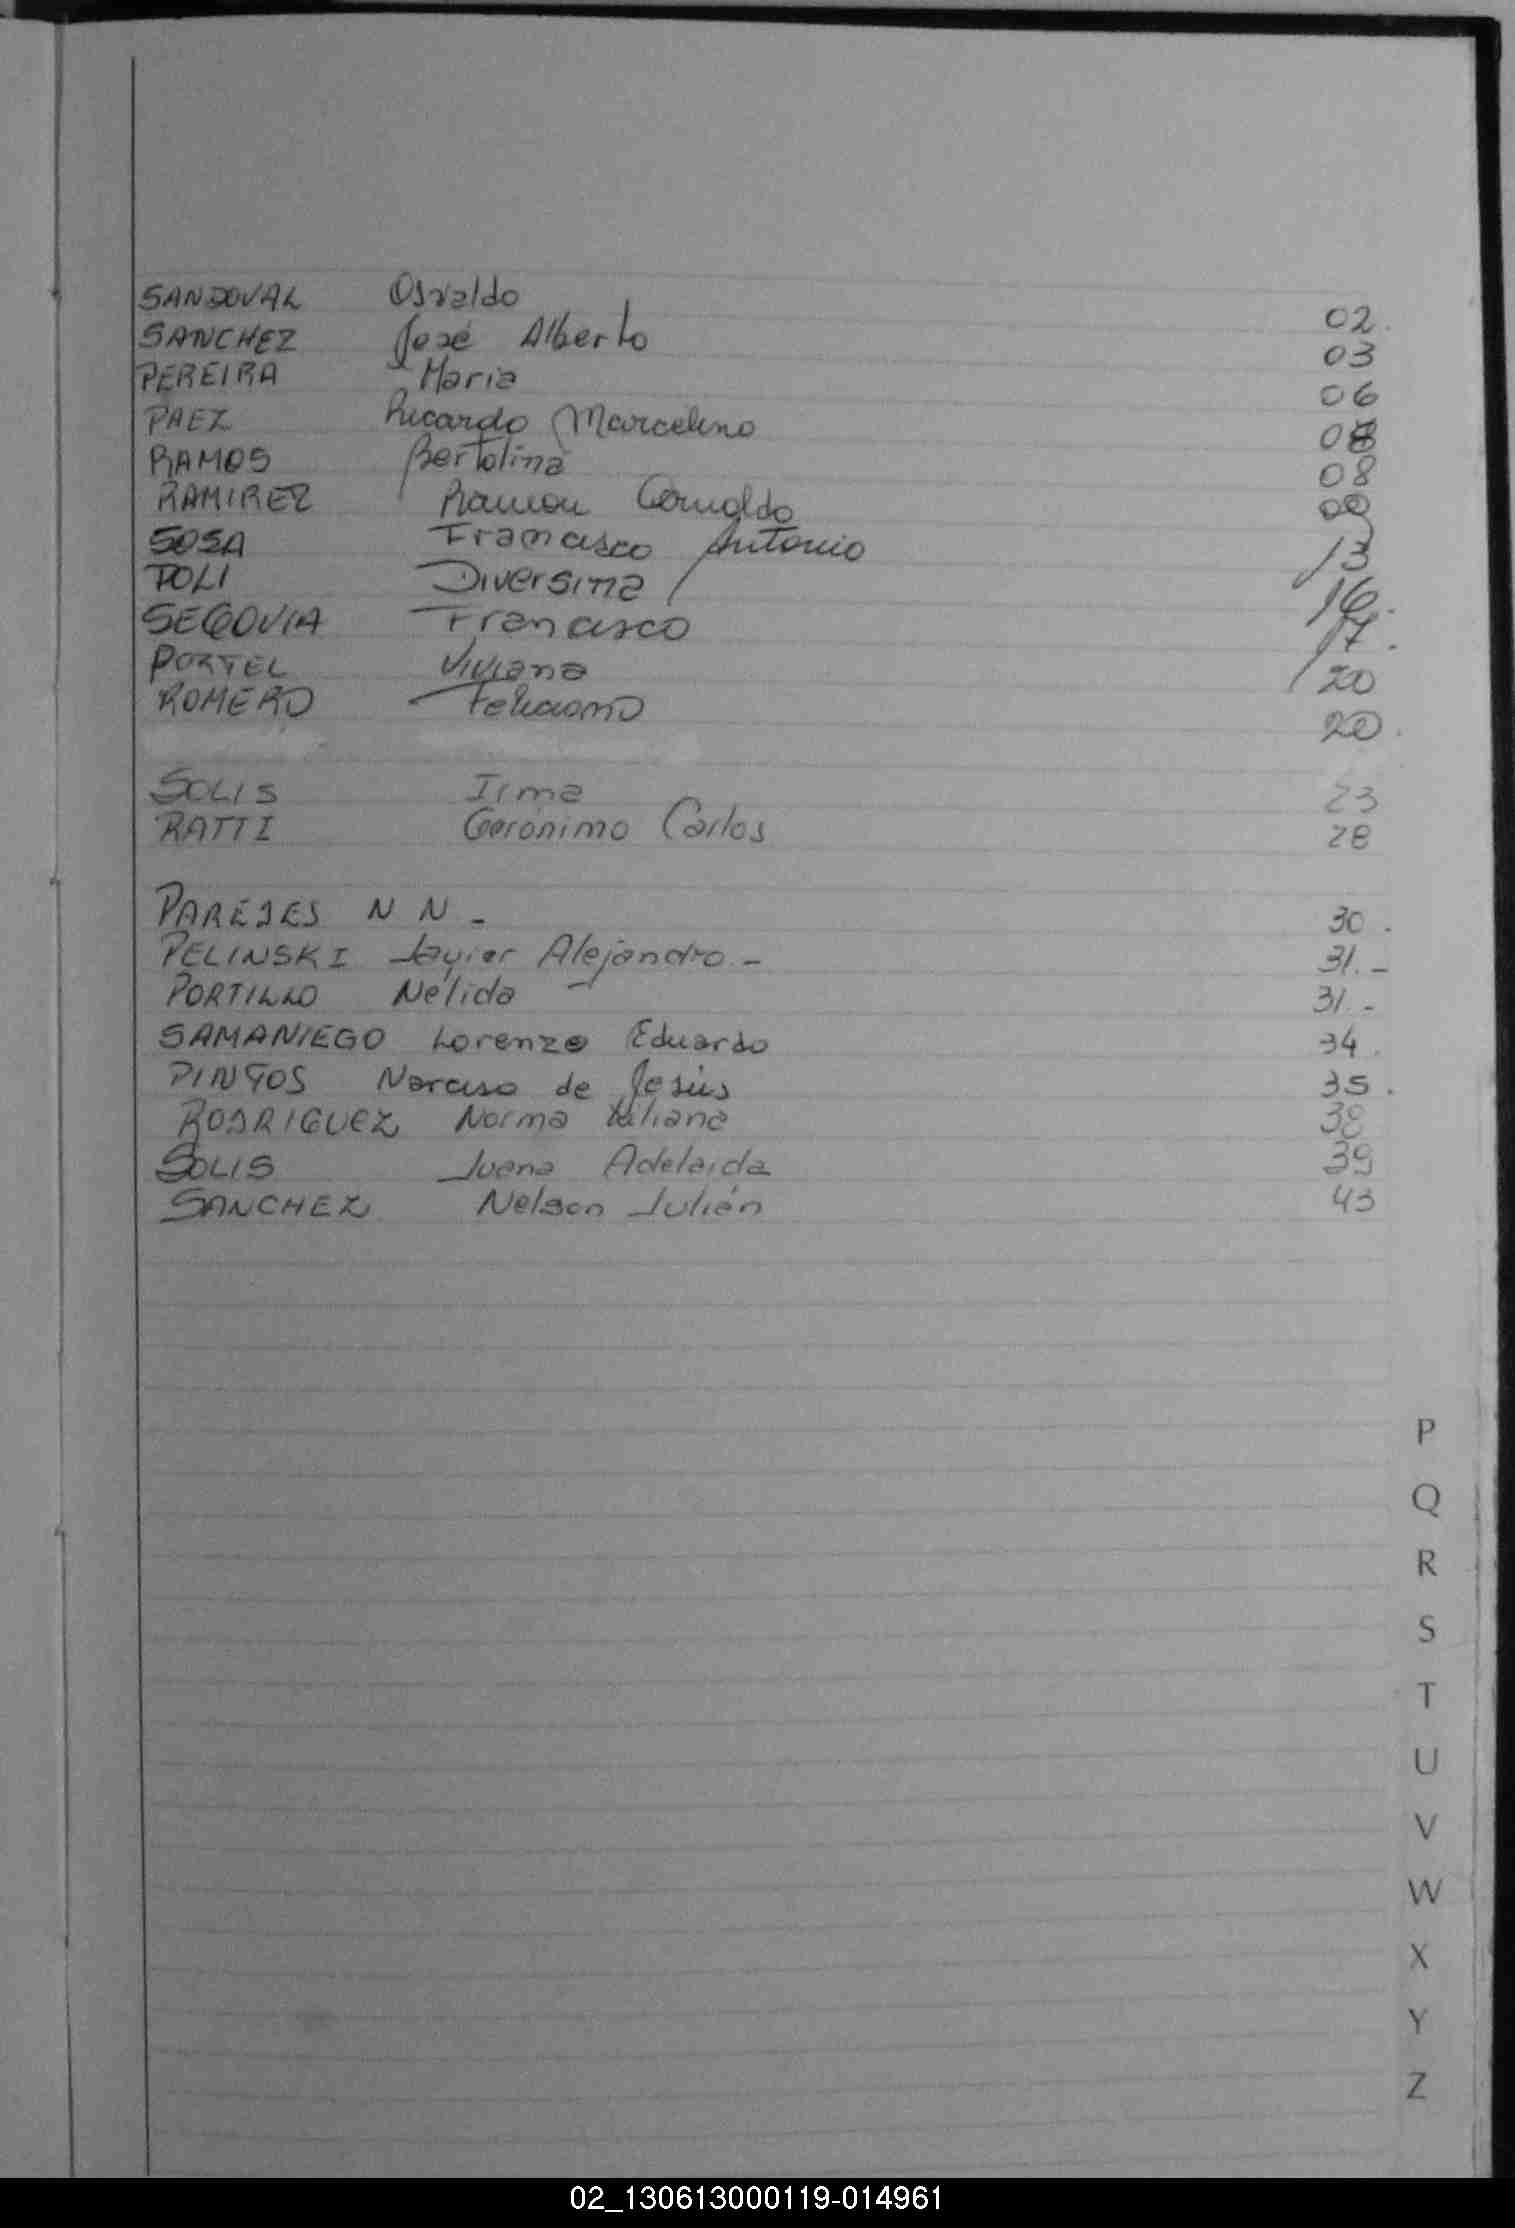 SANDOVAL Osvaldo 02.
SANCHEZ José Alberto 03
PEREIRA Maria 06
PAEZ Ricardo Marcelino 08
RAMOS Bertolina 08
RAMIREZ Ramon 09
SOSA Francisco Antonio 13
POLI Diversina 16.
SEGOVIA Francisco 17.
PORTEL Viviana 20
ROMERO Feliciano 20.
SOLIS Irma 23
RATTI Gerónimo Carlos 28
PAREDES N N - 30.
PELINSKI Javier Alejandro.- 31.-
PORTILLO Nélida 31.-
SAMANIEGO Lorenzo Eduardo 34.
PINTOS Narciso de Jesús 35.
RODRIGUEZ Norma Liliana 38
SOLIS Juana Adelaida 39
SANCHEZ Nelson Julián 43
P
Q
R
S
T
U
V
W
X
Y
Z
02_130613000119-014961